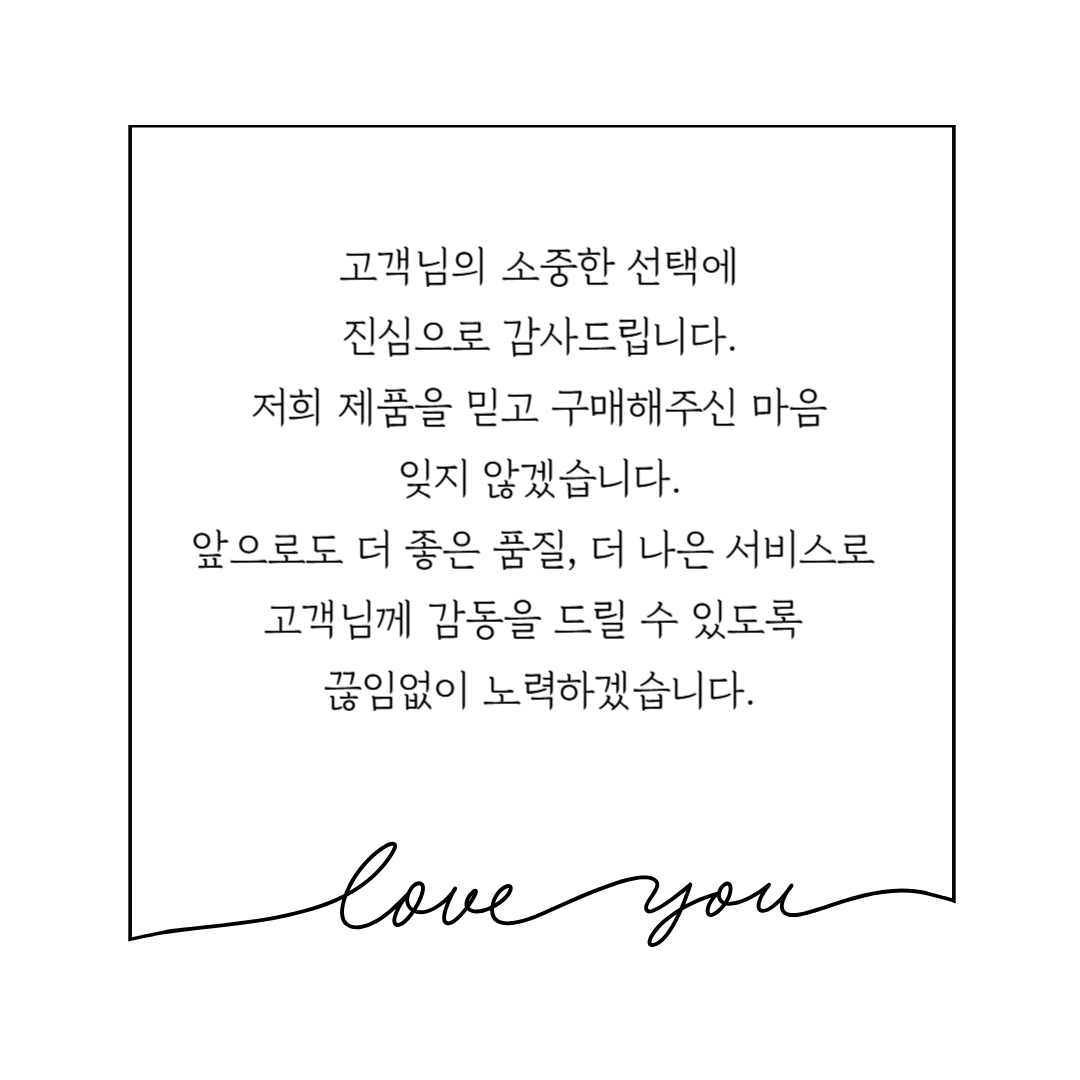 고객님의 소중한 선택에
진심으로 감사드립니다.
저희 제품을 믿고 구매해주신 마음
잊지 않겠습니다.
앞으로도 더 좋은 품질, 더 나은 서비스로
고객님께 감동을 드릴 수 있도록
끊임없이 노력하겠습니다.
love you